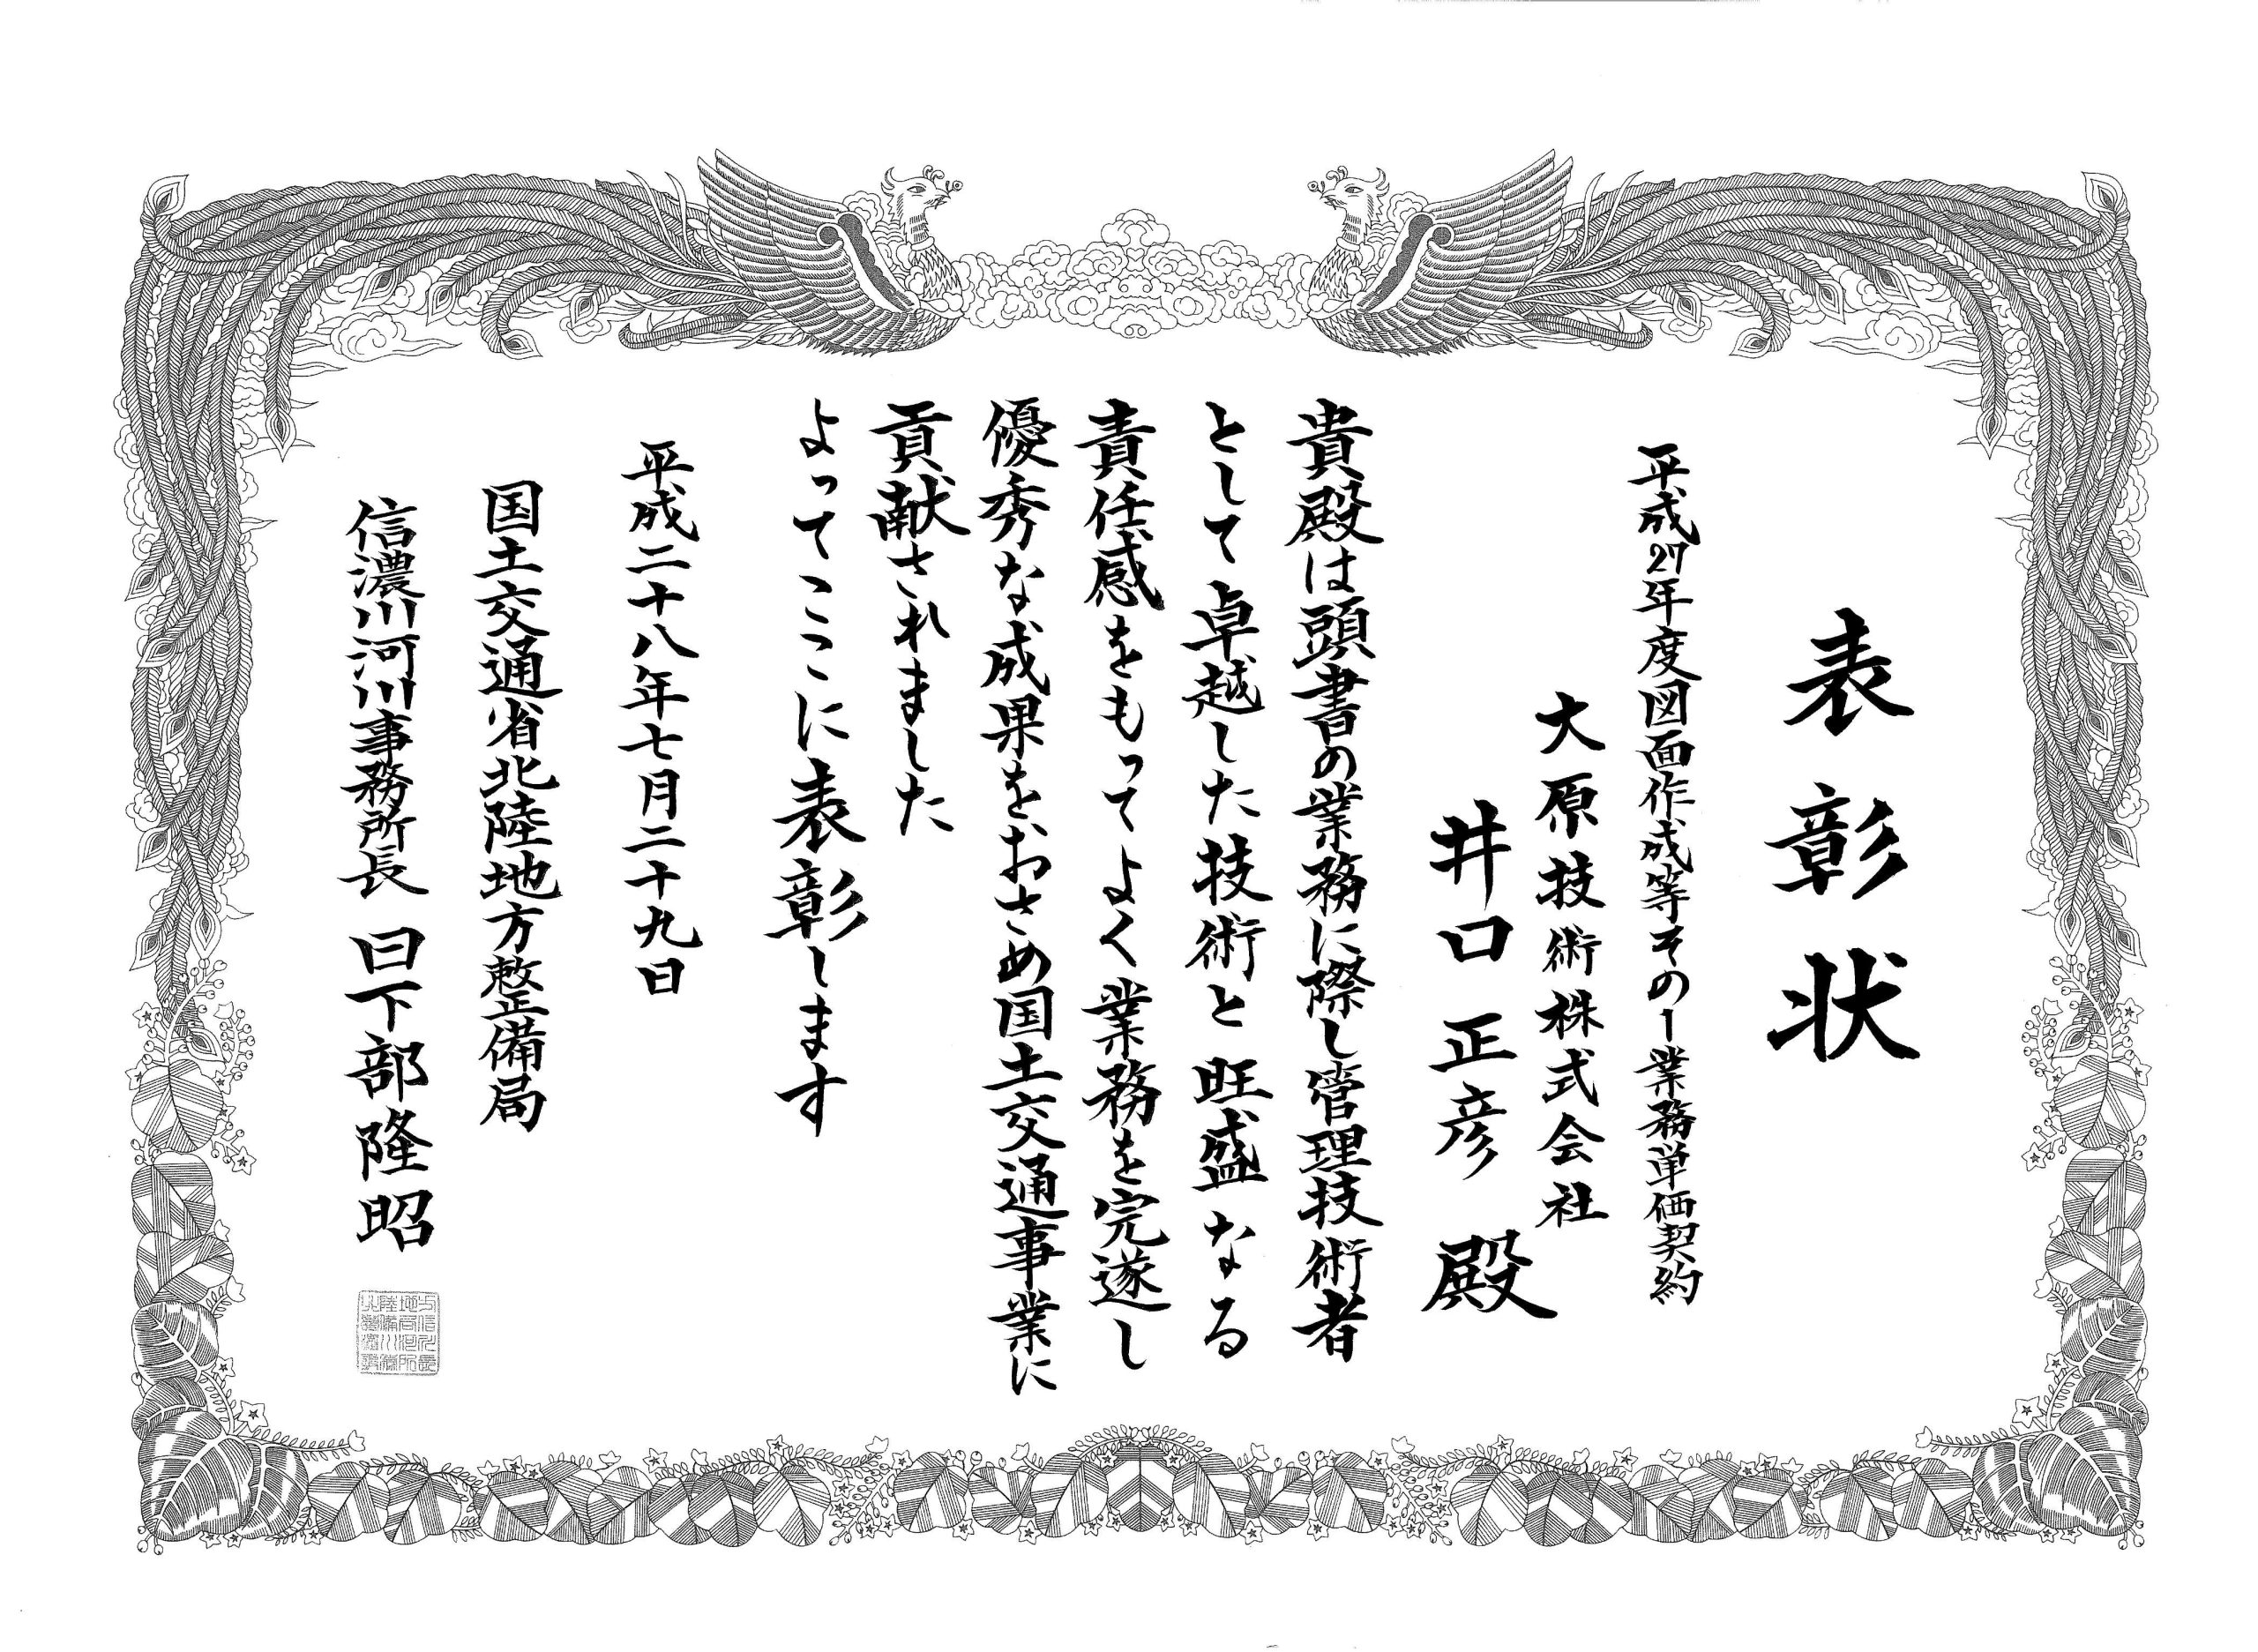 表彰状
平成27年度図面作成等その1業務単価契約
大原技術株式会社
井口正彦 殿
貴殿は頭書の業務に際し管理技術者
として卓越した技術と旺盛なる
責任感をもってよく業務を完遂し
優秀な成果をおさめ国土交通事業に
貢献されました
よってここに表彰します
平成二十八年七月二十九日
国土交通省北陸地方整備局
信濃川河川事務所長 日下部隆昭